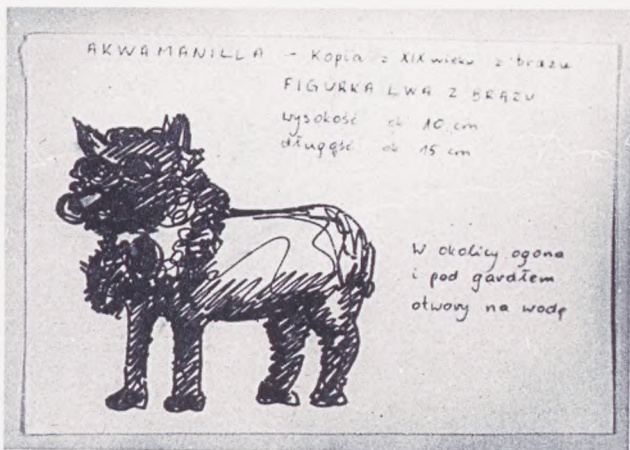 AKWAMANILLA – Kopia z XIX wieku z brązu
FIGURKA LWA Z BRĄZU
wysokość ok 10 cm
długość ok 15 cm
W okolicy ogona
i pod gardłem
otwory na wodę